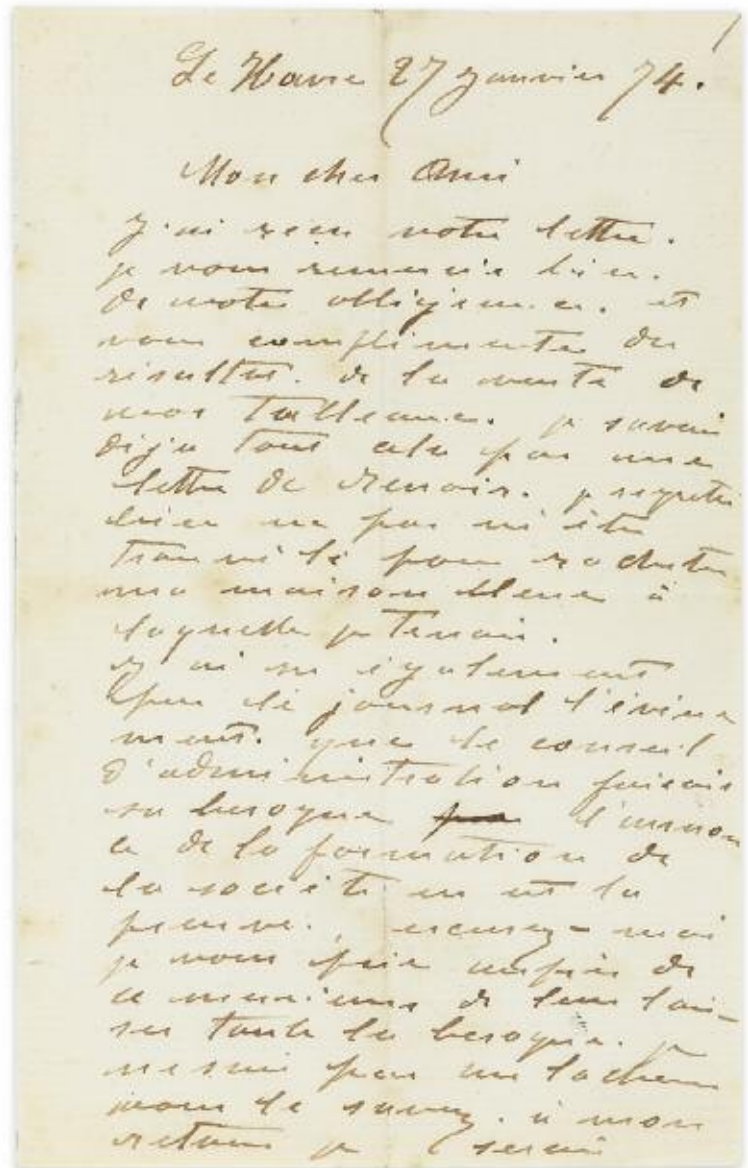 Le Havre 27 Janvier 74.
Mon cher Ami
J'ai recu votre lettre.
je vous remercie bien.
de votre obligence. et
vous complimente du
résultat. de la vente de
mes tableaux. je savais
déjà tout cela par une
lettre de Renoir. je regrette
bien ne pas m'être
trouvé là pour racheter
ma maison bleue à
laquelle je tenais.
J'ai su également
par le journal l'évène
ment. que le conseil
d'administration faisait
sa besogne l'annon
ce de la formation de
la société en est la
preuve. excusez-moi
je vous prie auprès de
ce messieurs de leur lais-
ser toute la besogne. je
ne suis pas un lacheur
vous le savez. à mon
retour je serai